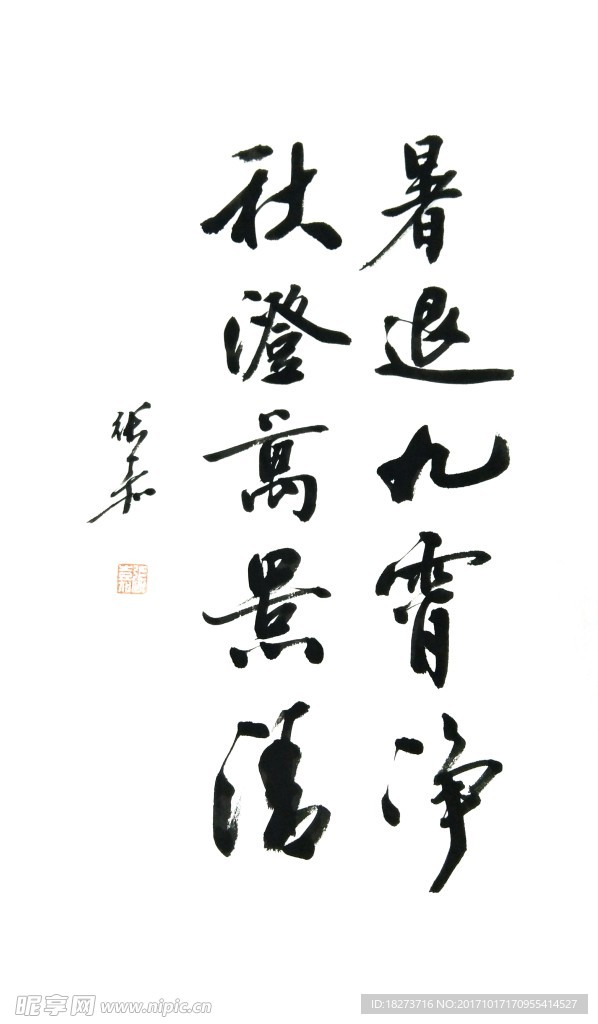 暑退九霄净
秋澄萬景清
张嘉
昵享网 www.nipic.cn
ID:18273716 NO:20171017170955414527